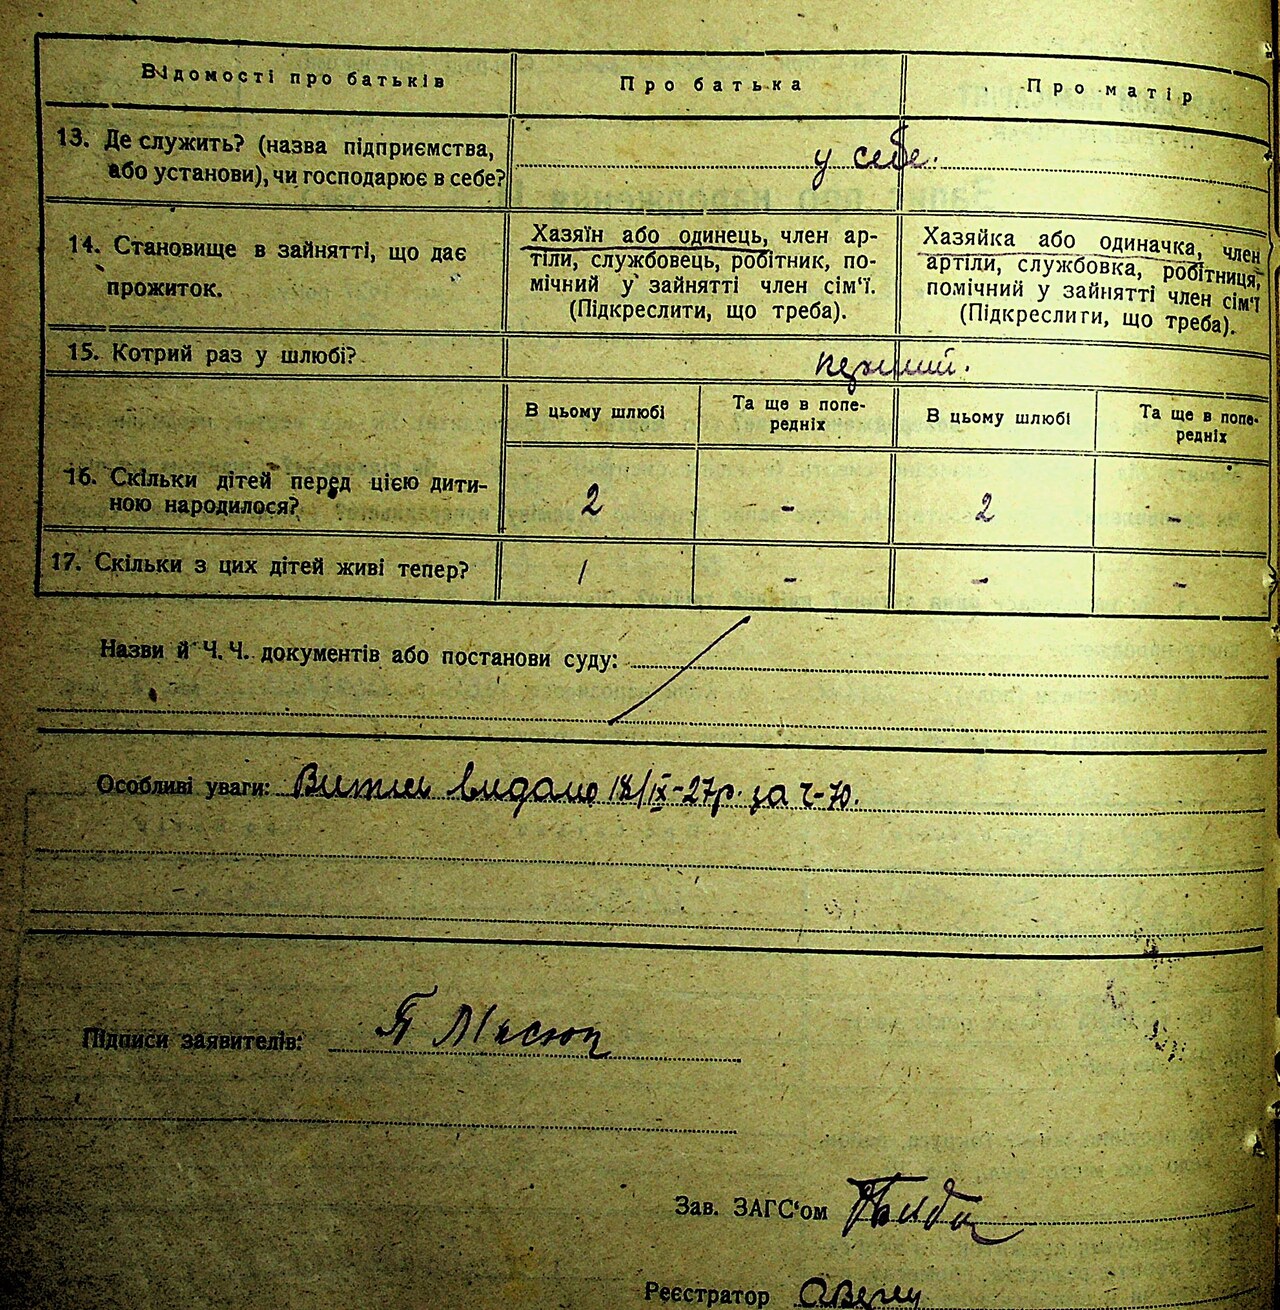 Відомості про батьків Про батька Про матір
13. Де служить? (назва підприємства, або установи), чи господарює в себе?
у себе.
14. Становище в зайнятті, що дає прожиток.
Хазяїн або одинець, член ар-
тіли, службовець, робітник, по-
мічний у зайнятті член сім'ї.
(Підкреслити, що треба).
Хазяйка або одиначка, член
артіли, службовка, робітниця,
помічний у зайнятті член сім'ї
(Підкреслити, що треба).
15. Котрий раз у шлюбі?
перший.
В цьому шлюбі
Та ще в попе-
редніх
В цьому шлюбі
Та ще в попе-
редніх
16. Скільки дітей перед цією дити-
ною народилося?
2 - 2 -
17. Скільки з цих дітей живі тепер? 1 - - -
Назви й Ч. Ч. документів або постанови суду:
Особливі уваги: видано 18/IX-27р. за ч-70.
Підписи заявителів:
Зав. ЗАГС'ом
Реєстратор